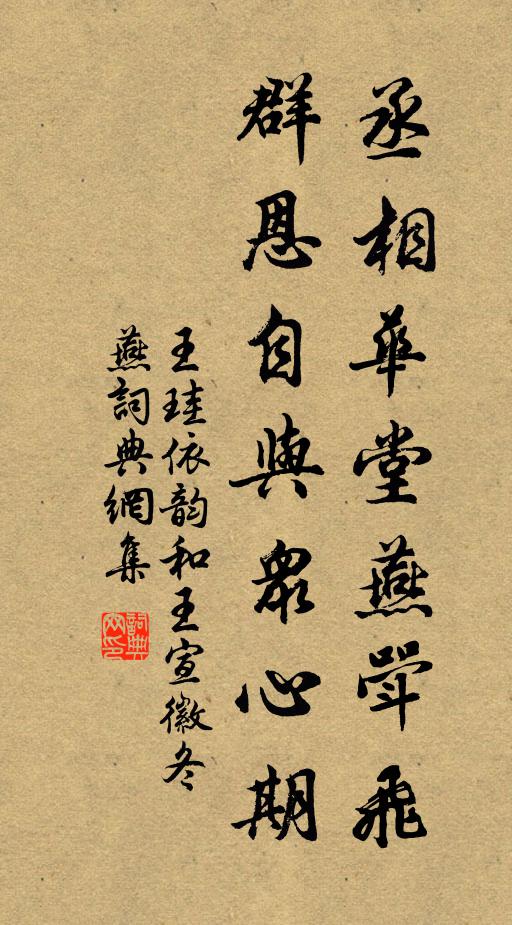 丞相華堂燕斝飛
群恩自與眾心期
王珪依韵和王宣徽冬
燕詞典網集
詞典
网印